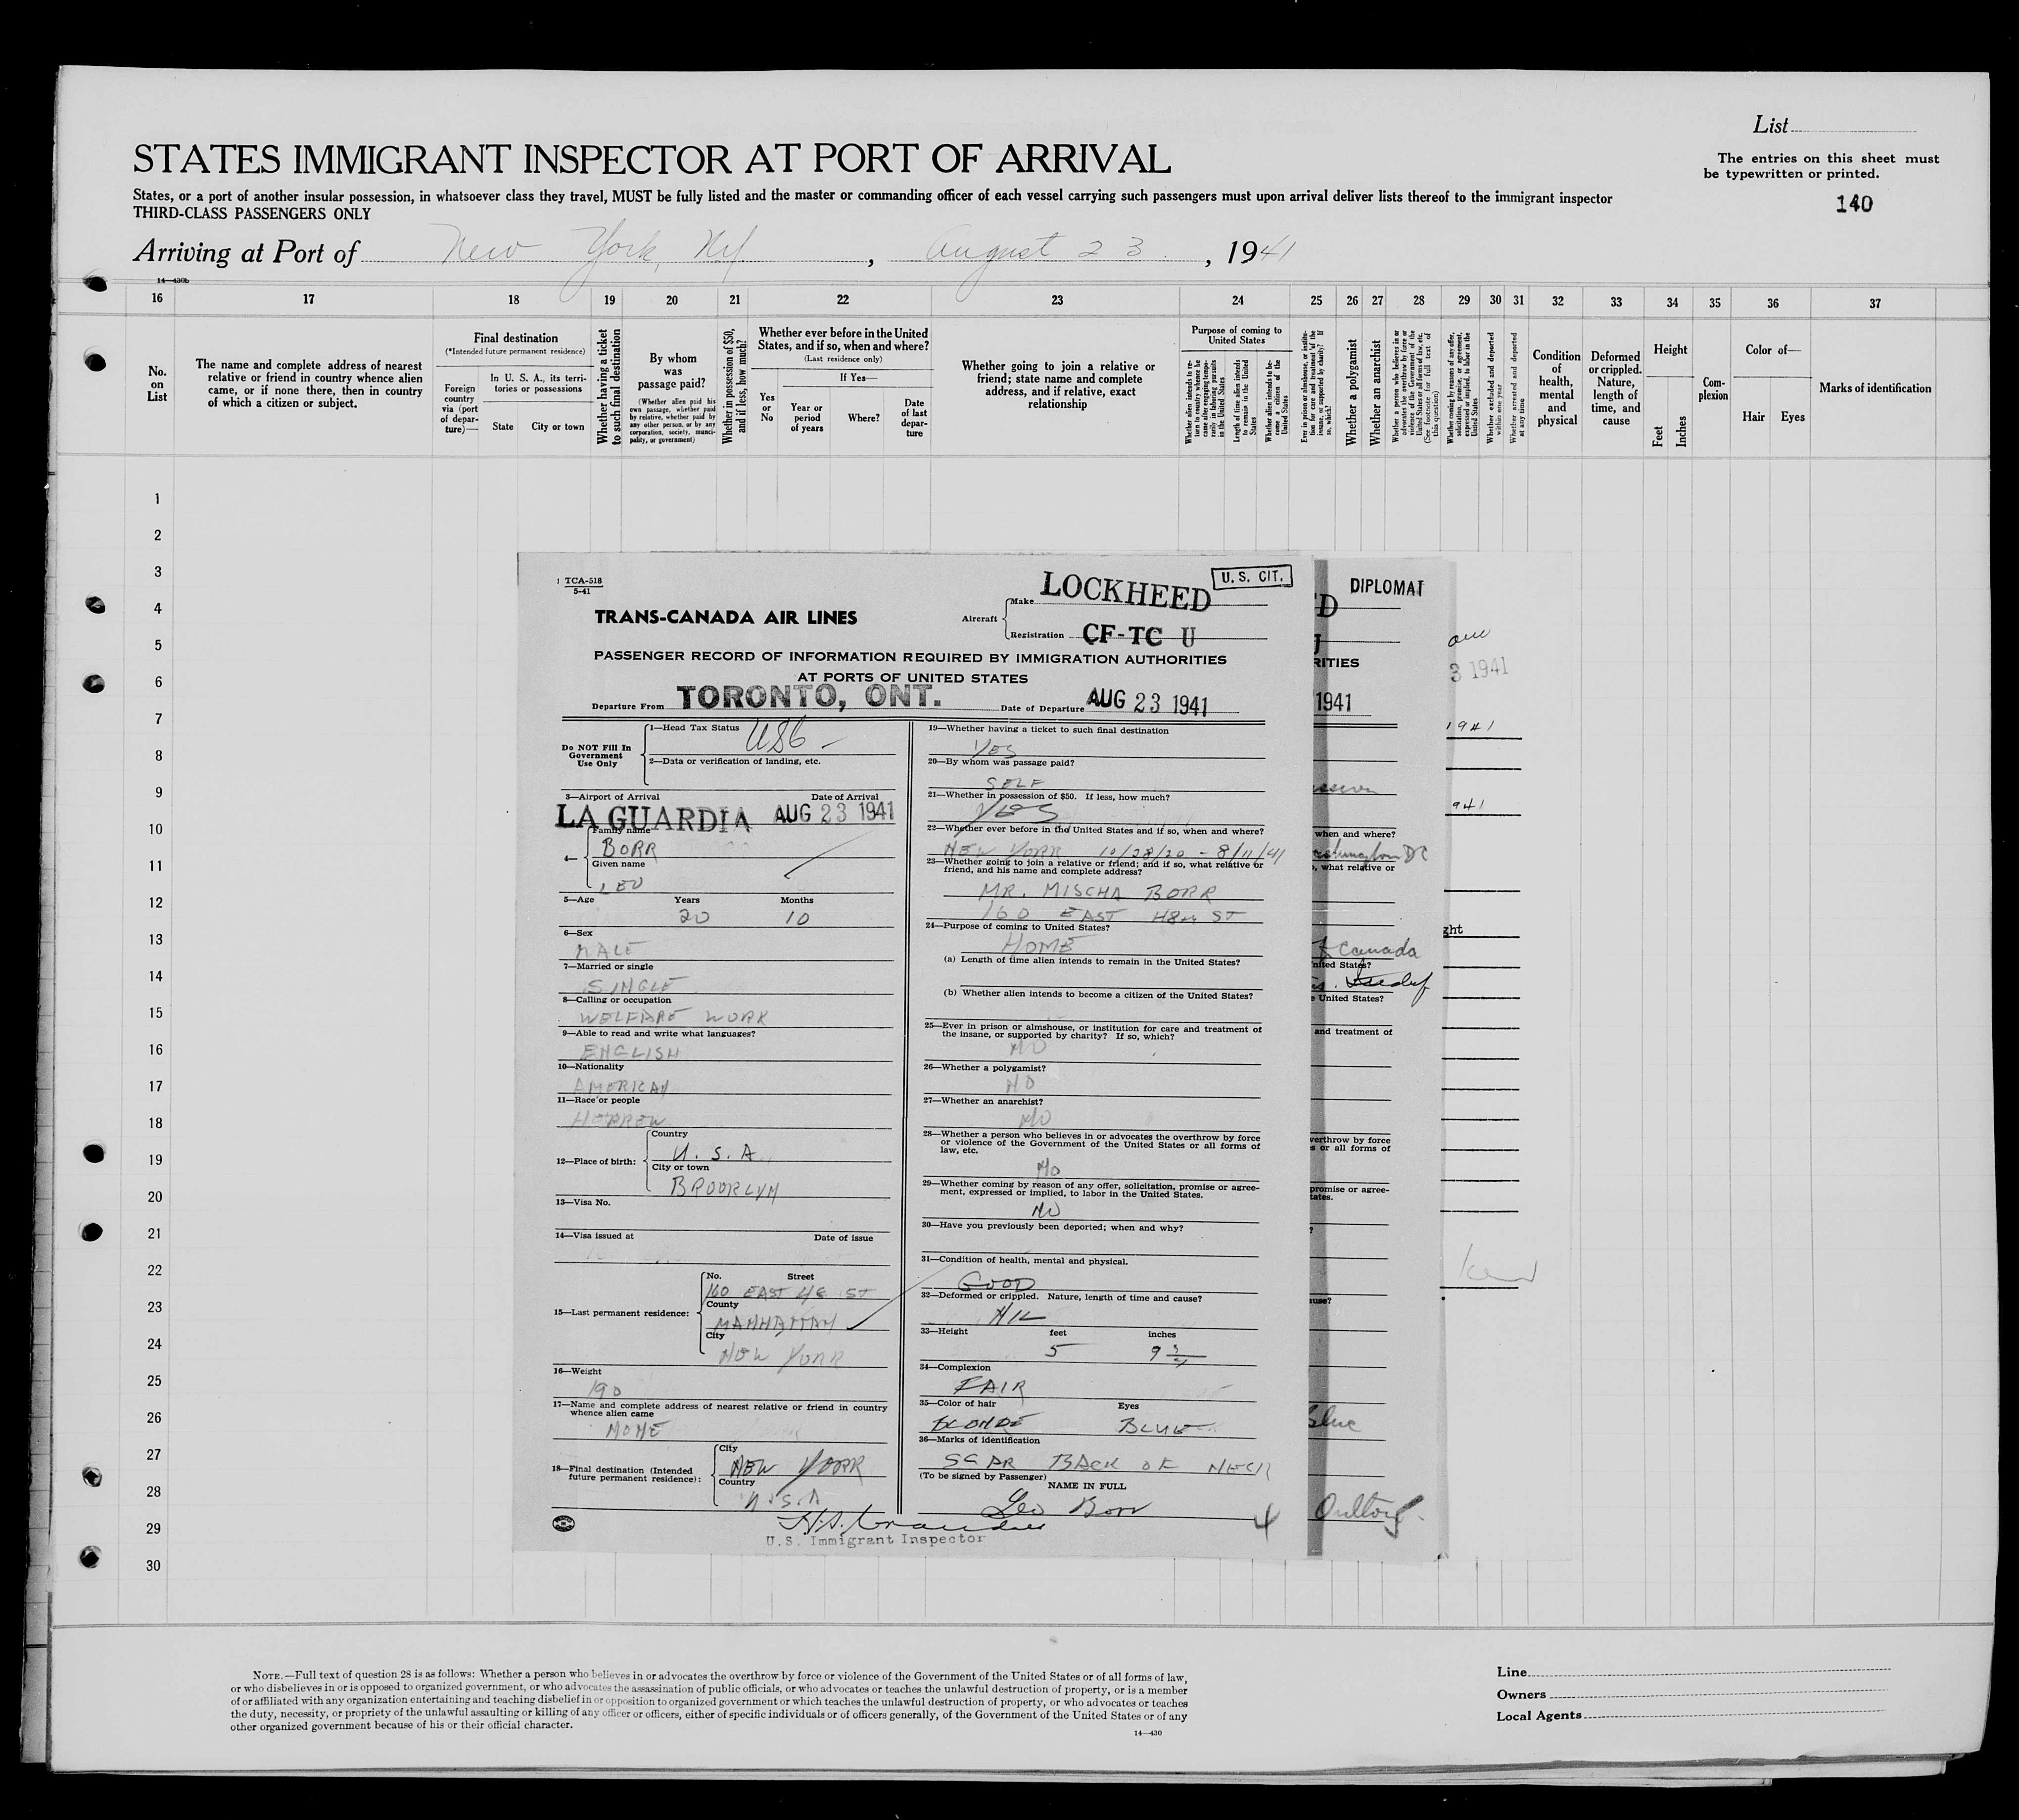 List
STATES IMMIGRANT INSPECTOR AT PORT OF ARRIVAL
The entries on this sheet must
be typewritten or printed.
States, or a port of another insular possession, in whatsoever class they travel, MUST be fully listed and the master or commanding officer of each vessel carrying such passengers must upon arrival deliver lists thereof to the immigrant inspector
THIRD-CLASS PASSENGERS ONLY
140
Arriving at Port of New York, NY, August 23, 1941
14—430b
16 17 18 19 20 21 22 23 24 25 26 27 28 29 30 31 32 33 34 35 36 37
No.
on
List
The name and complete address of nearest
relative or friend in country whence alien
came, or if none there, then in country
of which a citizen or subject.
Final destination
(*Intended future permanent residence)
Foreign
country
via (port
of depar-
ture)—
In U. S. A., its terri-
tories or possessions
State City or town
Whether having a ticket
to such final destination
By whom
was
passage paid?
(Whether alien paid his
own passage, whether paid
by relative, whether paid by
any other person, or by any
corporation, society, munici-
pality, or government)
Whether in possession of $50,
and if less, how much?
Whether ever before in the United
States, and if so, when and where?
(Last residence only)
If Yes—
Yes
or
No
Year or
period
of years
Where?
Date
of last
depar-
ture
Whether going to join a relative or
friend; state name and complete
address, and if relative, exact
relationship
Purpose of coming to
United States
Whether alien intends to re-
turn to country whence he
came after engaging tempo-
rarily in laboring pursuits
in the United States
Length of time alien intends
to remain in the United
States
Whether alien intends to be-
come a citizen of the
United States
Ever in prison or almshouse, or institu-
tion for care and treatment of the
insane, or supported by charity? If
so, which?
Whether a polygamist
Whether an anarchist
Whether a person who believes in or
advocates the overthrow by force or
violence of the Government of the
United States or all forms of law, etc.
(See footnote for full text of
this question)
Whether coming by reason of any offer,
solicitation, promise, or agreement,
expressed or implied, to labor in the
United States
Whether excluded and deported
within one year
Whether arrested and deported
at any time
Condition
of
health,
mental
and
physical
Deformed
or crippled.
Nature,
length of
time, and
cause
Height
Feet
Inches
Com-
plexion
Color of—
Hair Eyes
Marks of identification
1
2
3
4
5
6
7
8
9
10
11
12
13
14
15
16
17
18
19
20
21
22
23
24
25
26
27
28
29
30
TCA-518
5-41
TRANS-CANADA AIR LINES
Aircraft
Make LOCKHEED
U. S. CIT.
Registration CF-TC U
PASSENGER RECORD OF INFORMATION REQUIRED BY IMMIGRATION AUTHORITIES
AT PORTS OF UNITED STATES
Departure From TORONTO, ONT. Date of Departure AUG 23 1941
Do NOT Fill In
Government
Use Only
1—Head Tax Status USC
2—Data or verification of landing, etc.
3—Airport of Arrival Date of Arrival
LA GUARDIA AUG 23 1941
4—
Family name
BORR
Given name
LEO
5—Age Years Months
20 10
6—Sex
MALE
7—Married or single
SINGLE
8—Calling or occupation
WELFARE WORK
9—Able to read and write what languages?
ENGLISH
10—Nationality
AMERICAN
11—Race or people
HEBREW
12—Place of birth:
Country
U. S. A.
City or town
BROOKLYN
13—Visa No.
14—Visa issued at Date of issue
15—Last permanent residence:
No. Street
160 EAST 48 ST
County
MANHATTAN
City
NEW YORK
16—Weight
190
17—Name and complete address of nearest relative or friend in country
whence alien came
NONE
18—Final destination (Intended
future permanent residence):
City
NEW YORK
Country
U.S.A
19—Whether having a ticket to such final destination
YES
20—By whom was passage paid?
SELF
21—Whether in possession of $50. If less, how much?
YES
22—Whether ever before in the United States and if so, when and where?
NEW YORK 10/28/20 - 8/11/41
23—Whether going to join a relative or friend; and if so, what relative or
friend, and his name and complete address?
MR. MISCHA BORR
160 EAST 48TH ST
24—Purpose of coming to United States?
HOME
(a) Length of time alien intends to remain in the United States?
(b) Whether alien intends to become a citizen of the United States?
25—Ever in prison or almshouse, or institution for care and treatment of
the insane, or supported by charity? If so, which?
NO
26—Whether a polygamist?
NO
27—Whether an anarchist?
NO
28—Whether a person who believes in or advocates the overthrow by force
or violence of the Government of the United States or all forms of
law, etc.
NO
29—Whether coming by reason of any offer, solicitation, promise or agree-
ment, expressed or implied, to labor in the United States.
NO
30—Have you previously been deported; when and why?
31—Condition of health, mental and physical.
GOOD
32—Deformed or crippled. Nature, length of time and cause?
NIL
33—Height feet inches
5 9 3/4
34—Complexion
FAIR
35—Color of hair Eyes
BLONDE BLUE
36—Marks of identification
SCAR BACK OF NECK
(To be signed by Passenger)
NAME IN FULL
Leo Borr
4
U. S. Immigrant Inspector
DIPLOMAT
D
RITIES
1941
3 1941
1941
941
when and where?
DC
, what relative or
ght
Canada
nited States?
e United States?
and treatment of
verthrow by force
s or all forms of
promise or agree-
tates.
?
use?
blue
NOTE.—Full text of question 28 is as follows: Whether a person who believes in or advocates the overthrow by force or violence of the Government of the United States or of all forms of law,
or who disbelieves in or is opposed to organized government, or who advocates the assassination of public officials, or who advocates or teaches the unlawful destruction of property, or is a member
of or affiliated with any organization entertaining and teaching disbelief in or opposition to organized government or which teaches the unlawful destruction of property, or who advocates or teaches
the duty, necessity, or propriety of the unlawful assaulting or killing of any officer or officers, either of specific individuals or of officers generally, of the Government of the United States or of any
other organized government because of his or their official character.
14—430
Line
Owners
Local Agents